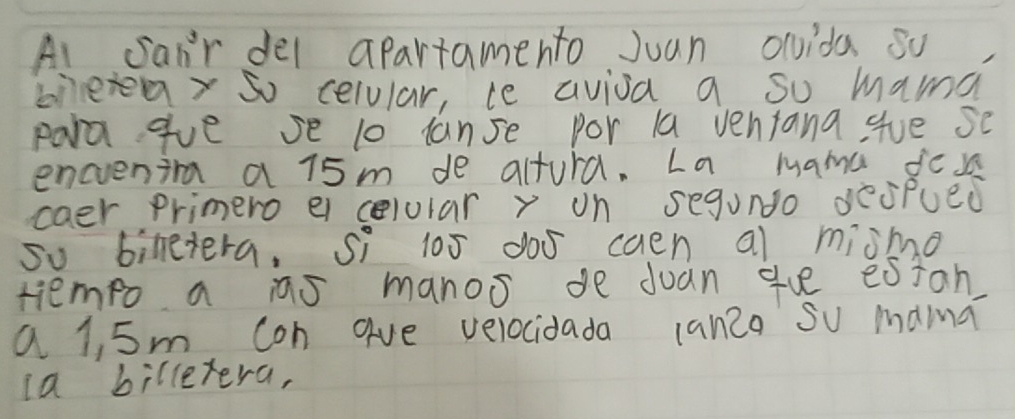 Al salir del apartamento Juan olvida su
billetera y su celular, le avisa a su mamá
para que se lo lanse por la ventana que se
encuentra a 15m de altura. La mama deja
caer primero el celular y un segundo despues
su billetera. Si los dos caen al mismo
tiempo a las manos de Juan que estan
a 1,5m con que velocidada lanza su mamá
la billetera.